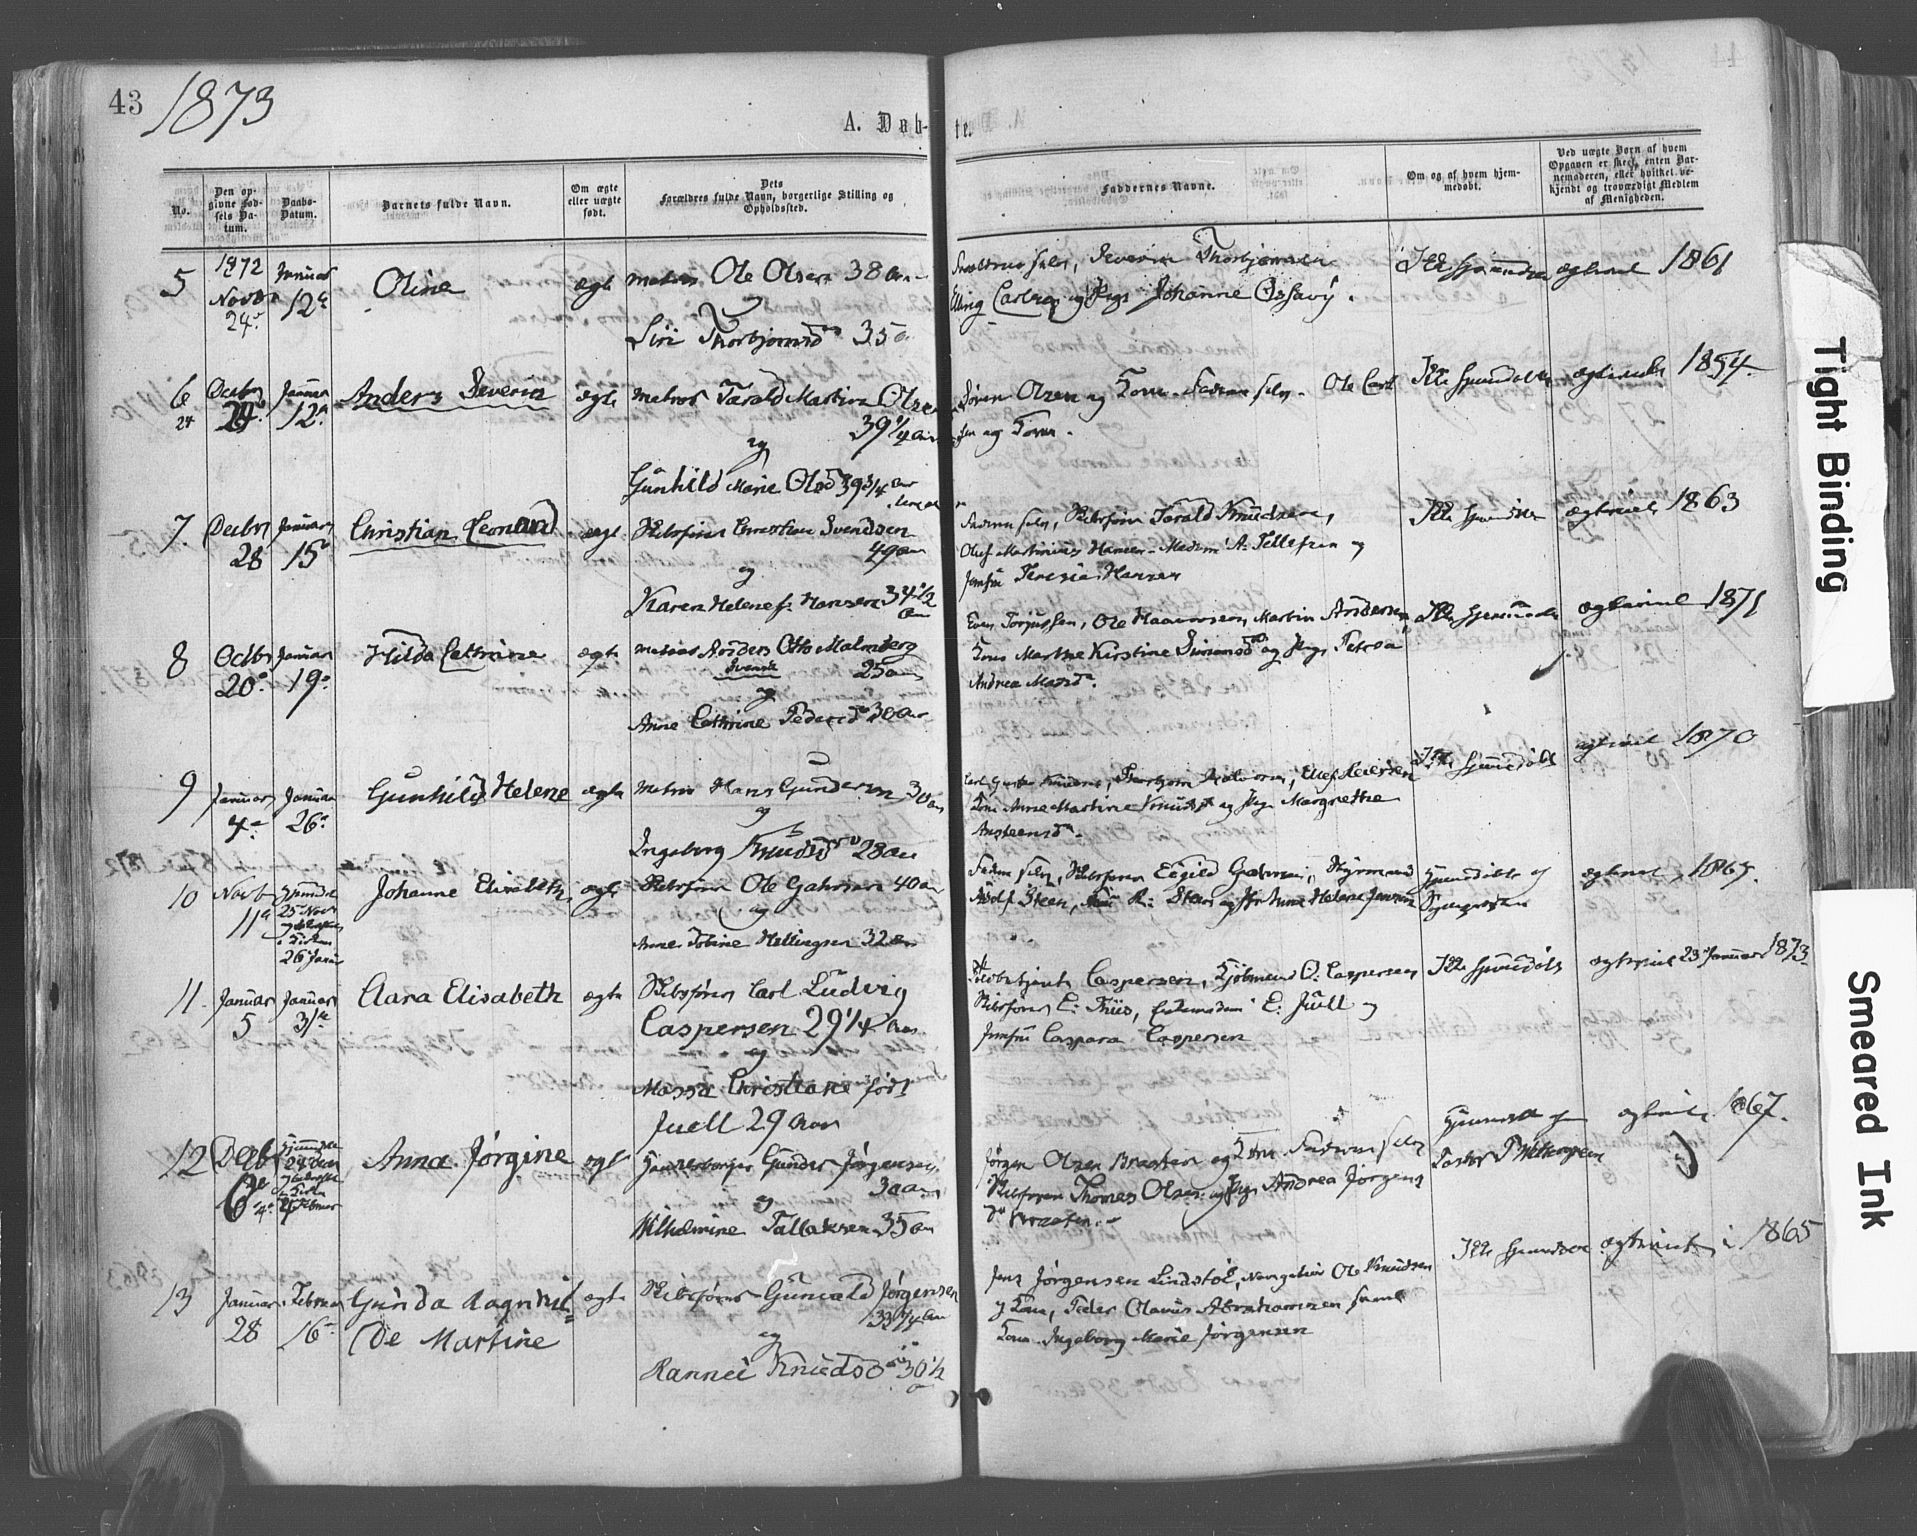 43
1873
A. Døb-
te.
No.
Den op-
givne Fød-
sels Da-
tum.
Daabs-
Datum.
Barnets fulde Navn.
Om ægte
eller uægte
født.
Dets
Forældres fulde Navn, borgerlige Stilling og
Opholdssted.
Faddernes Navne.
Om og af hvem hjem-
medøbt.
Ved uægte Børn af hvem
Opgaven er skeet, enten Bar-
nemoderen, eller hvilket be-
kjendt og troværdigt Medlem
af Menigheden.
5
1872
Novbr
24
Januar
12
Oline
ægte
Matros Ole Olsen 38 Aar
Siri Thorbjørnsd 35
Faderen selv, Severin Thorbjørnsen
Elling Carlsen og Pige Johanne Ossavy.
Ikke hjemmedøbt
ægteviet 1861
6
24
Decbr
Januar
12
Anders Severin
ægte
Matros Tarald Martin Olsen
39 1/4 Aar
og
Gunhild Marie Olsd 39 3/4 Aar
Søren Olsen og Kone. Faderen selv. Ole Carl
sen og Kone.
Ikke hjemmedøbt
ægteviet 1854
7.
Decbr
28
Januar
15
Christian Leonard
ægte
Skibsfører Christian Svendsen
49 Aar
og
Karen Helene f. Hansen 34 1/2
Aar
Faderen selv, Skibsfører Tarald Knudsen,
Oluf Martinius Hansen. Madam A. Tellefsen og
Jomfru Teresia Hansen
Ikke hjemmedøbt
ægteviet 1863
8
Octbr
20
Januar
19
Hilda Cathrine
ægte
Matros Anders Otto Malmberg
Svensk
25 Aar
og
Anne Cathrine Pedersd 30 Aar
Even Torjussen, Ole Haavorsen, Martin Andersen,
Kone Marthe Kirstine Simonsd og Pige Petrea
Andrea Madsd.
Ikke hjemmedøbt
ægteviet 1871
9
Januar
4
Januar
26
Gunhild Helene
ægte
Matros Hans Gundersen 30 Aar
og
Ingeborg Knudsd 28 Aar
Carl Gustav Knudsen, Thorbjørn Halvorsen, Ellef Reiersen
Kone Anne Martine Knudsd og Pige Margrethe
Ansteensd.
Ikke hjemmedøbt
ægteviet 1870
10
Novb
11
Hjemmedøbt
25 Novbr
i Kirken
26 Januar
Johanne Elisabeth
ægte
Skibsfører Ole Gahrsen 40 Aar
og
Anne Tobine Hellingsen 32 Aar
Faderen selv, Skibsfører Eegild Gahrsen, Styrmand
Adolf Steen, R. Steen og Jfr Anne Helene Jensen
Hjemmedøbt og
Sognepresten
ægteviet 1865.
11.
Januar
5
Januar
31
Clara Elisabeth
ægte
Skibsfører Carl Ludvig
Caspersen 29 1/4 Aar
og
Massa Christiane født
Juell 29 Aar
Toldbetjent Caspersen, Kjøbmand O. Caspersen
Skibsfører C. Thiis, Enkemadam E. Juell og
Jomfru Caspara Caspersen
Ikke hjemmedøbt
ægteviet 23 Januar 1873
12
Decbr
6
Hjemmedøbt
i Kirken
Februar
Anna Jørgine
ægte
Gunder Jørgensen
30 Aar
og
Wilhelmine Tallaksen 35 Aar
Jørgen Olsen Braaten og Kone Faderen selv
Skibsfører Thomas Olsen og Pige Andrea Jørgens
d Braaten.
Hjemmedøbt af
Pastor
ægteviet 1867.
13
Januar
28
Februar
16
Gunda Ragnhil
de Martine
ægte
Skibsfører Gunvald Jørgensen
33 3/4 Aar
og
Rannei Knudsd 30 1/2
Jens Jørgensen Lindstøl, Navigatør Ole Knudsen
og Kone, Peder Olavus Abrahamsen samt
Kone Ingeborg Marie Jørgensen
Ikke hjemmedøbt
ægteviet i 1865
Tight Binding
Smeared Ink